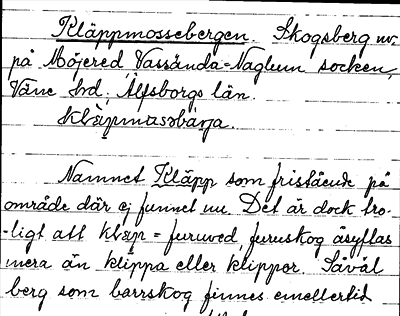 Kläppmossebergen. Skogsberg nv.
på Möjered Vassända-Naglum socken,
Väne hd. Älfsborgs län.
klæpmasabärja.
Namnet Kläpp som fristående på
område där ej funnet nu. Det är dock tro-
-ligt att klæp = furuved, furuskog åsyftas
mera än klippa eller klippor. Såväl
berg som barrskog finnes emellertid